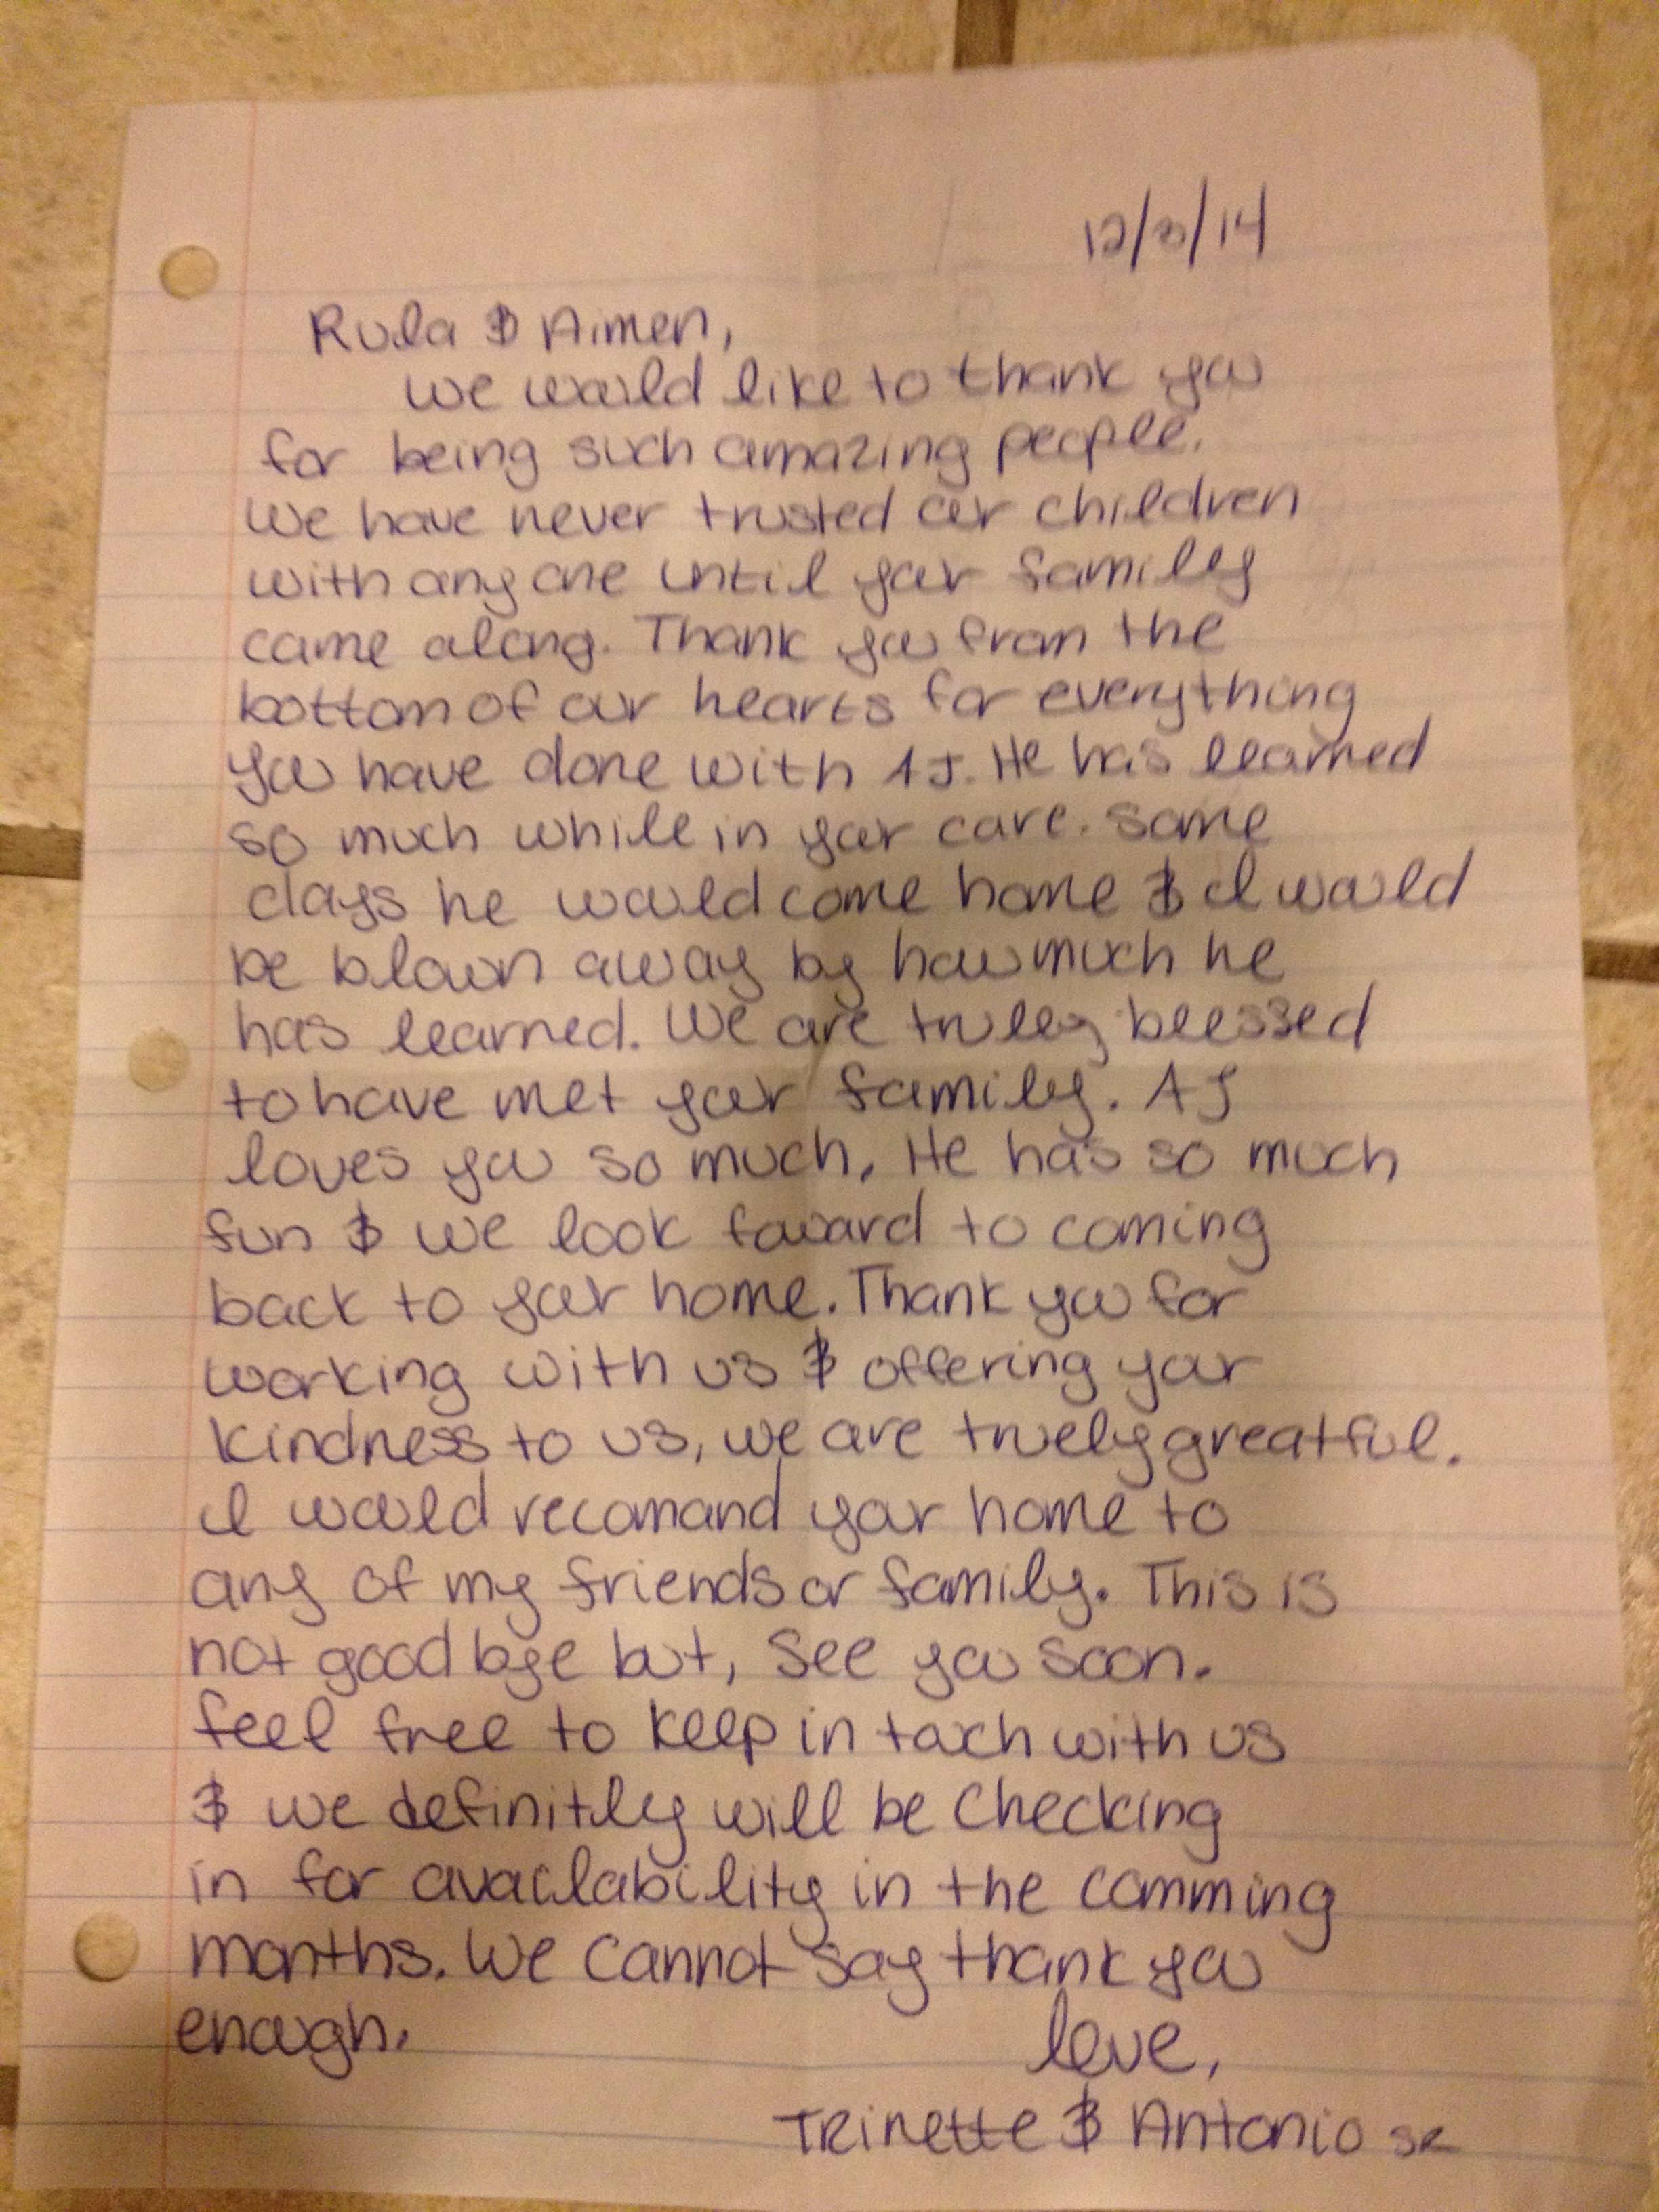 12/3/14
Rula & Aimen,
We would like to thank you
for being such amazing people.
We have never trusted our children
with anyone until your family
came along. Thank you from the
bottom of our hearts for everything
you have done with AJ. He has learned
so much while in your care. Some
days he would come home & I would
be blown away by how much he
has learned. We are truley blessed
to have met your family. AJ
loves you so much. He has so much
fun & we look foward to coming
back to your home. Thank you for
working with us & offering your
kindness to us, we are truely greatful.
I would recomand your home to
any of my friends or family. This is
not good bye but, See you soon.
feel free to keep in touch with us
& we definitly will be checking
in for availability in the comming
months. We cannot say thank you
enough.
love,
Trinette & Antonio SR